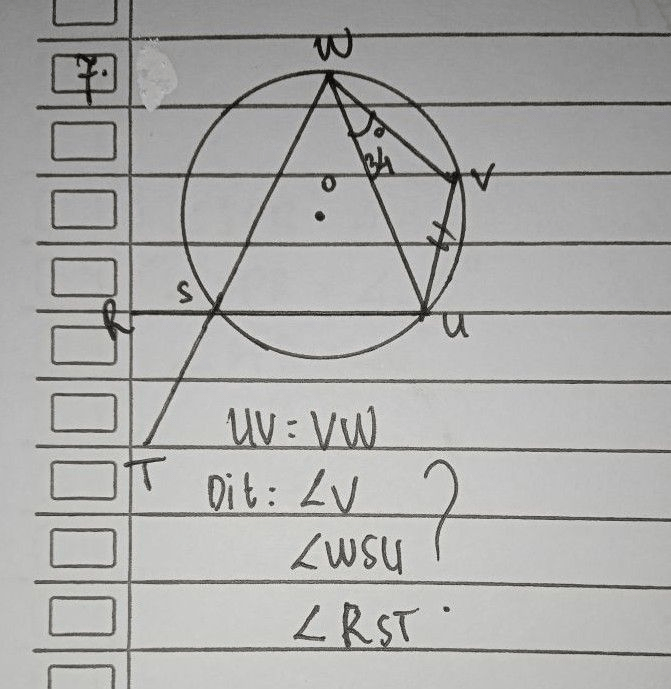 7.
W
34°
V
O
S
R
U
T
UV = VW
Dit : ∠V
∠WSU ?
∠RST